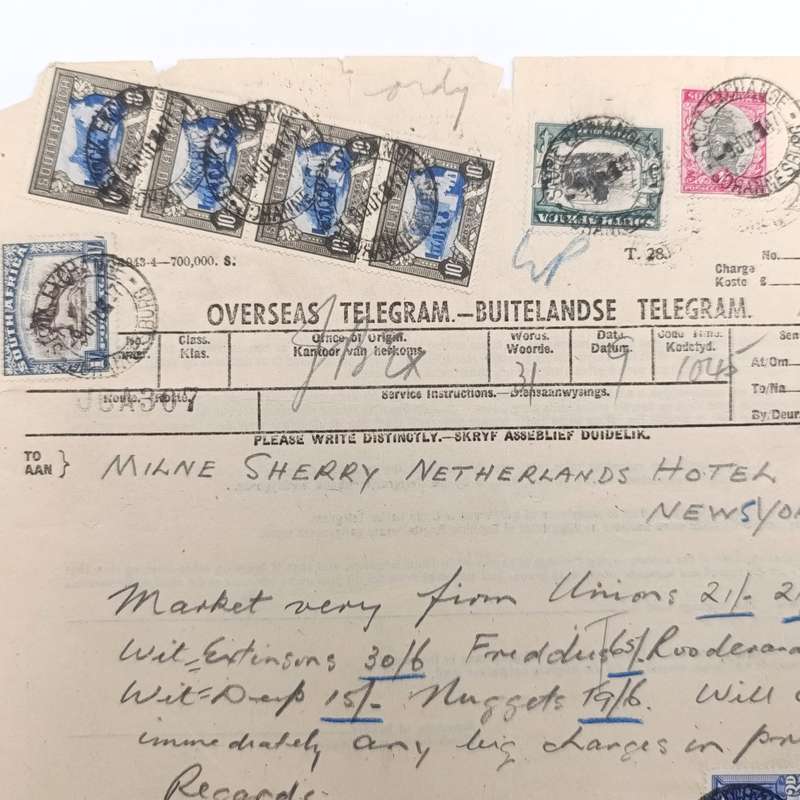 ordy
SOUTH AFRICA
10
10
10
SOUTH AFRICA
STOCK EXCHANGE
JOHANNESBURG
SOUTH AFRICA
2043-4—700,000. S.
T. 28.
No.
Charge
Koste £
OVERSEAS TELEGRAM.—BUITELANDSE TELEGRAM.
Class. Office of Origin. Words. Date Code Time. Sen
Klas. Kantoor van herkoms. Woorde. Datum. Kodetyd.
31 9 1045
At/Om
To/Na
By/Deur
USA367
Service Instructions.—Diensaanwysings.
PLEASE WRITE DISTINCTLY.—SKRYF ASSEBLIEF DUIDELIK.
TO
AAN } MILNE SHERRY NETHERLANDS HOTEL
NEWSYO
Market very firm Unions 21/- 2
Wit=Extinsons 30/6 Freddies 65/. Rooderand
Wit=Deep 15/- Nuggets 19/6. Will
immediately any big changes in
Regards.